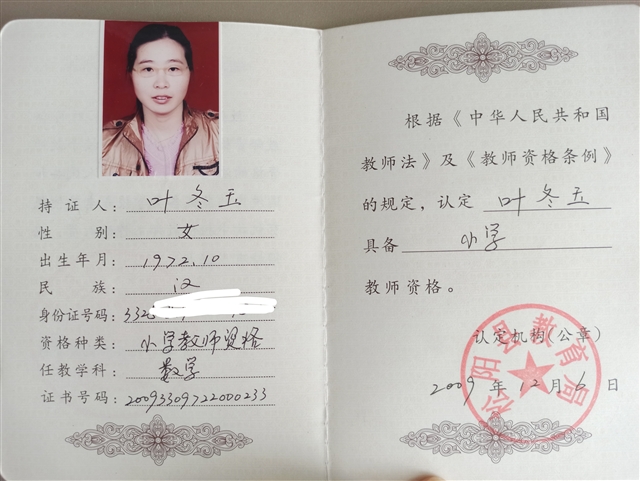 持证人：叶冬玉
性别：女
出生年月：1972.10
民族：汉
身份证号码：332
资格种类：小学教师资格
任教学科：数学
证书号码：20093309722000233
根据《中华人民共和国
教师法》及《教师资格条例》
的规定，认定 叶冬玉
具备 小学
教师资格。
认定机构(公章)
2009年12月6日
阳县教育局